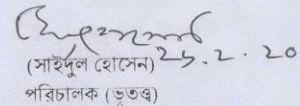 (সাইদুল হোসেন) 25.2.20
পরিচালক (ভূতত্ত্ব)